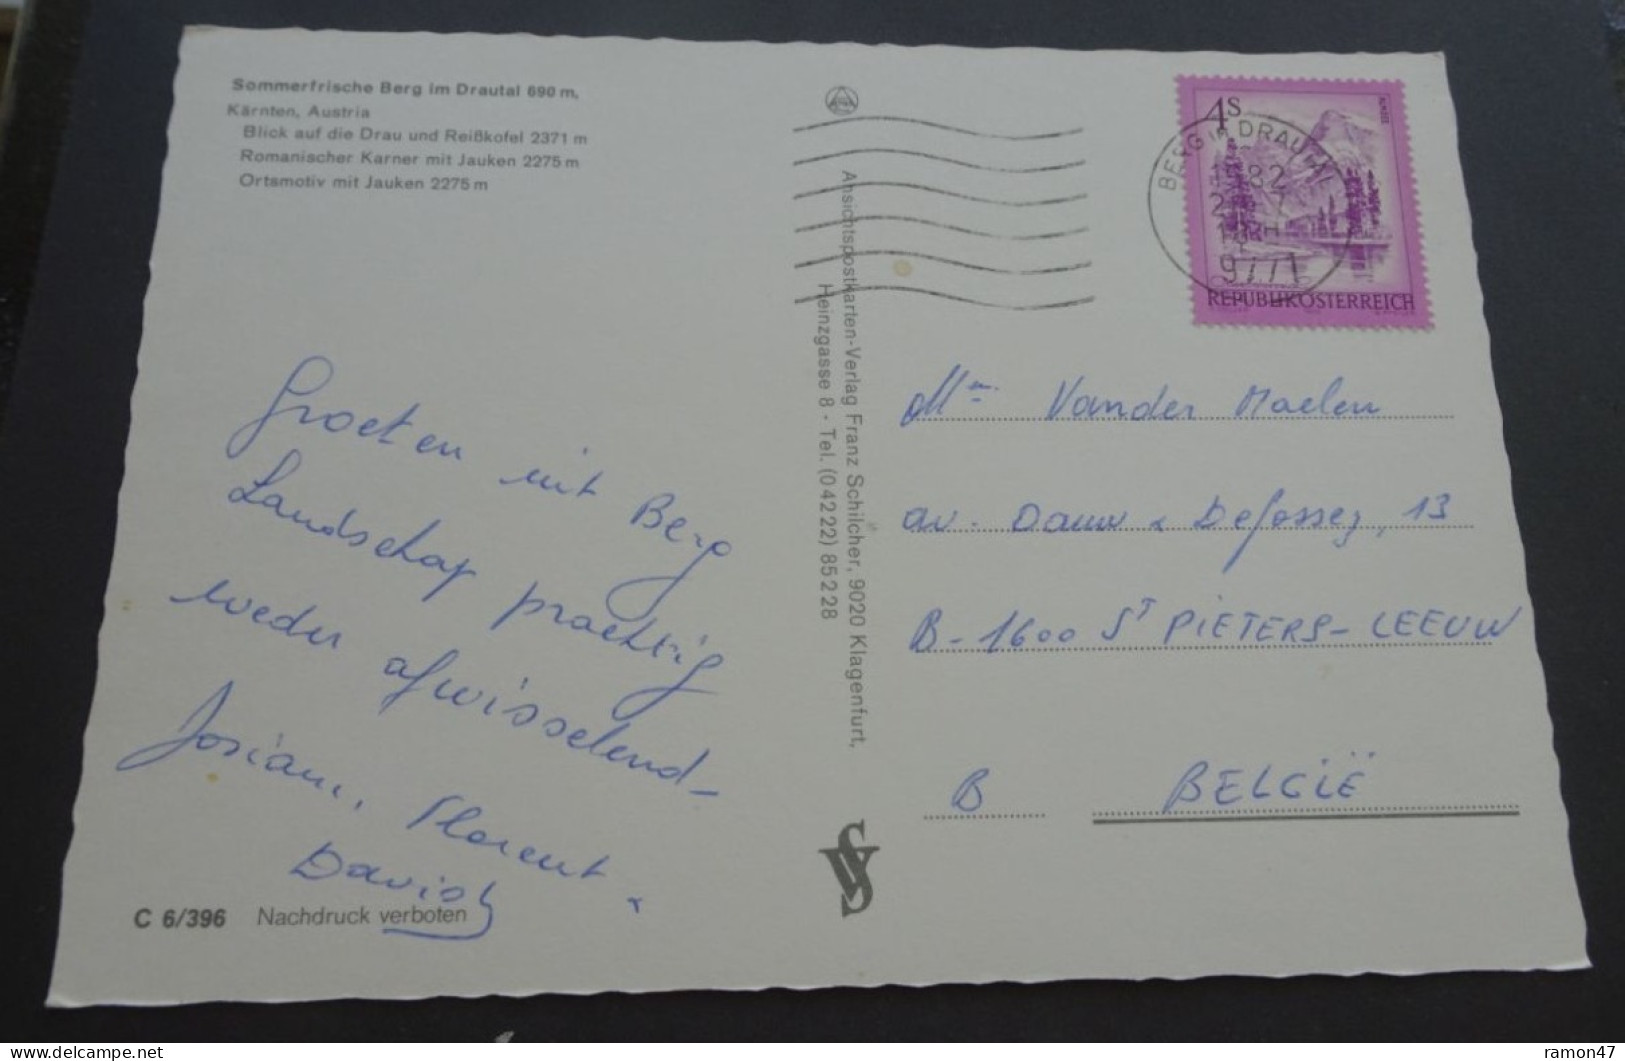 Sommerfrische Berg im Drautal 690 m,
Kärnten, Austria
Blick auf die Drau und Reißkofel 2371 m
Romanischer Karner mit Jauken 2275 m
Ortsmotiv mit Jauken 2275 m
Groeten uit Berg
Landschap prachtig
weder afwisselend-
Josiane, Florent &
David
C 6/396 Nachdruck verboten
Ansichtspostkarten-Verlag Franz Schilcher, 9020 Klagenfurt,
Heinzgasse 8 - Tel. (04222) 85228
4S
REPUBLIK ÖSTERREICH
BERG im DRAUTAL
1982
9771
Mme Vander Maelen
av. Defossez, 13
B-1600 ST PIETERS-LEEUW
B BELGIË
ramon47